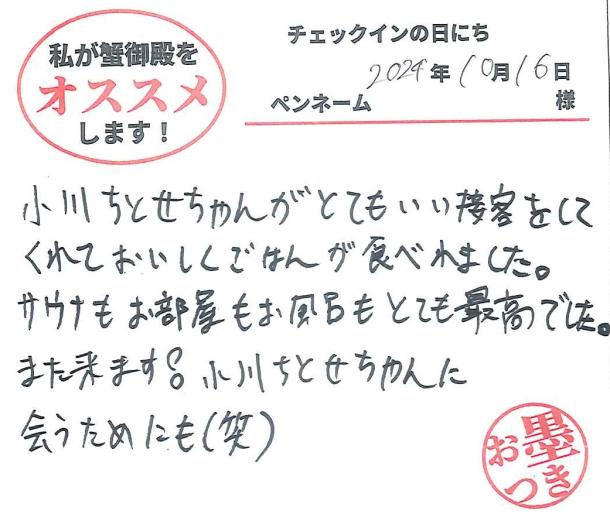 私が蟹御殿を
オススメ
します！
チェックインの日にち
2024年10月16日
ペンネーム 様
小川ちとせちゃんがとてもいい接客をして
くれておいしくごはんが食べれました。
サウナもお部屋もお風呂もとても最高でした。
また来ます！小川ちとせちゃんに
会うためにも(笑)
お墨つき